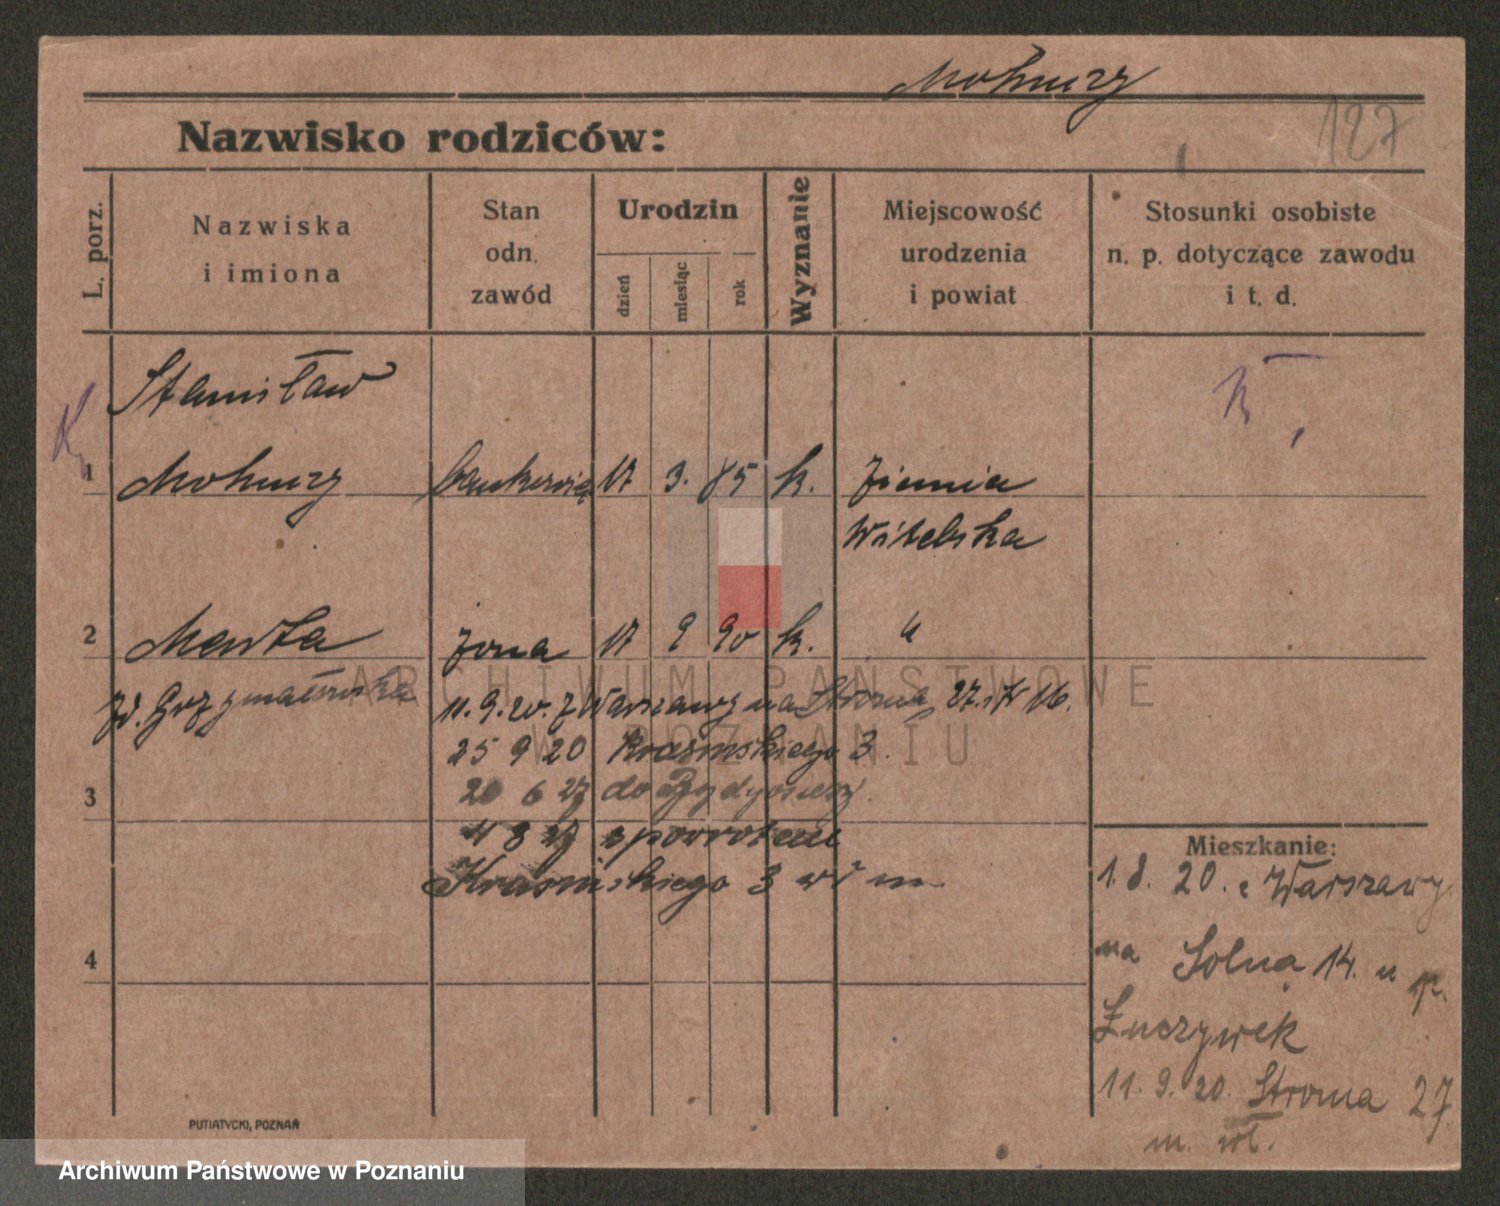 Mohuczy
127
Nazwisko rodziców:
L. porz.
Nazwiska
i imiona
Stan
odn.
zawód
Urodzin
dzień
miesiąc
rok
Wyznanie
Miejscowość
urodzenia
i powiat
Stosunki osobiste
n. p. dotyczące zawodu
i t. d.
Stanisław
K
1 Mohuczy 17 3. 85 k. Ziemia
Witebska
2 Marta żona 17 9 90 k. "
zd. Grzymałowska
11. 9. 20. z Warszawy na Stroma 27.
25 9 20 Krasińskiego 3.
3 20 6 27 do Bydgoszczy
4 8 27 z powrotem
Krasińskiego 3 wł m
4
Mieszkanie:
1. 8. 20. z Warszawy
na Solna 14. u p.
Łuczywek
11. 9. 20. Stroma 27
m. wł.
PUTIATYCKI, POZNAŃ
ARCHIWUM PAŃSTWOWE
W POZNANIU
Archiwum Państwowe w Poznaniu